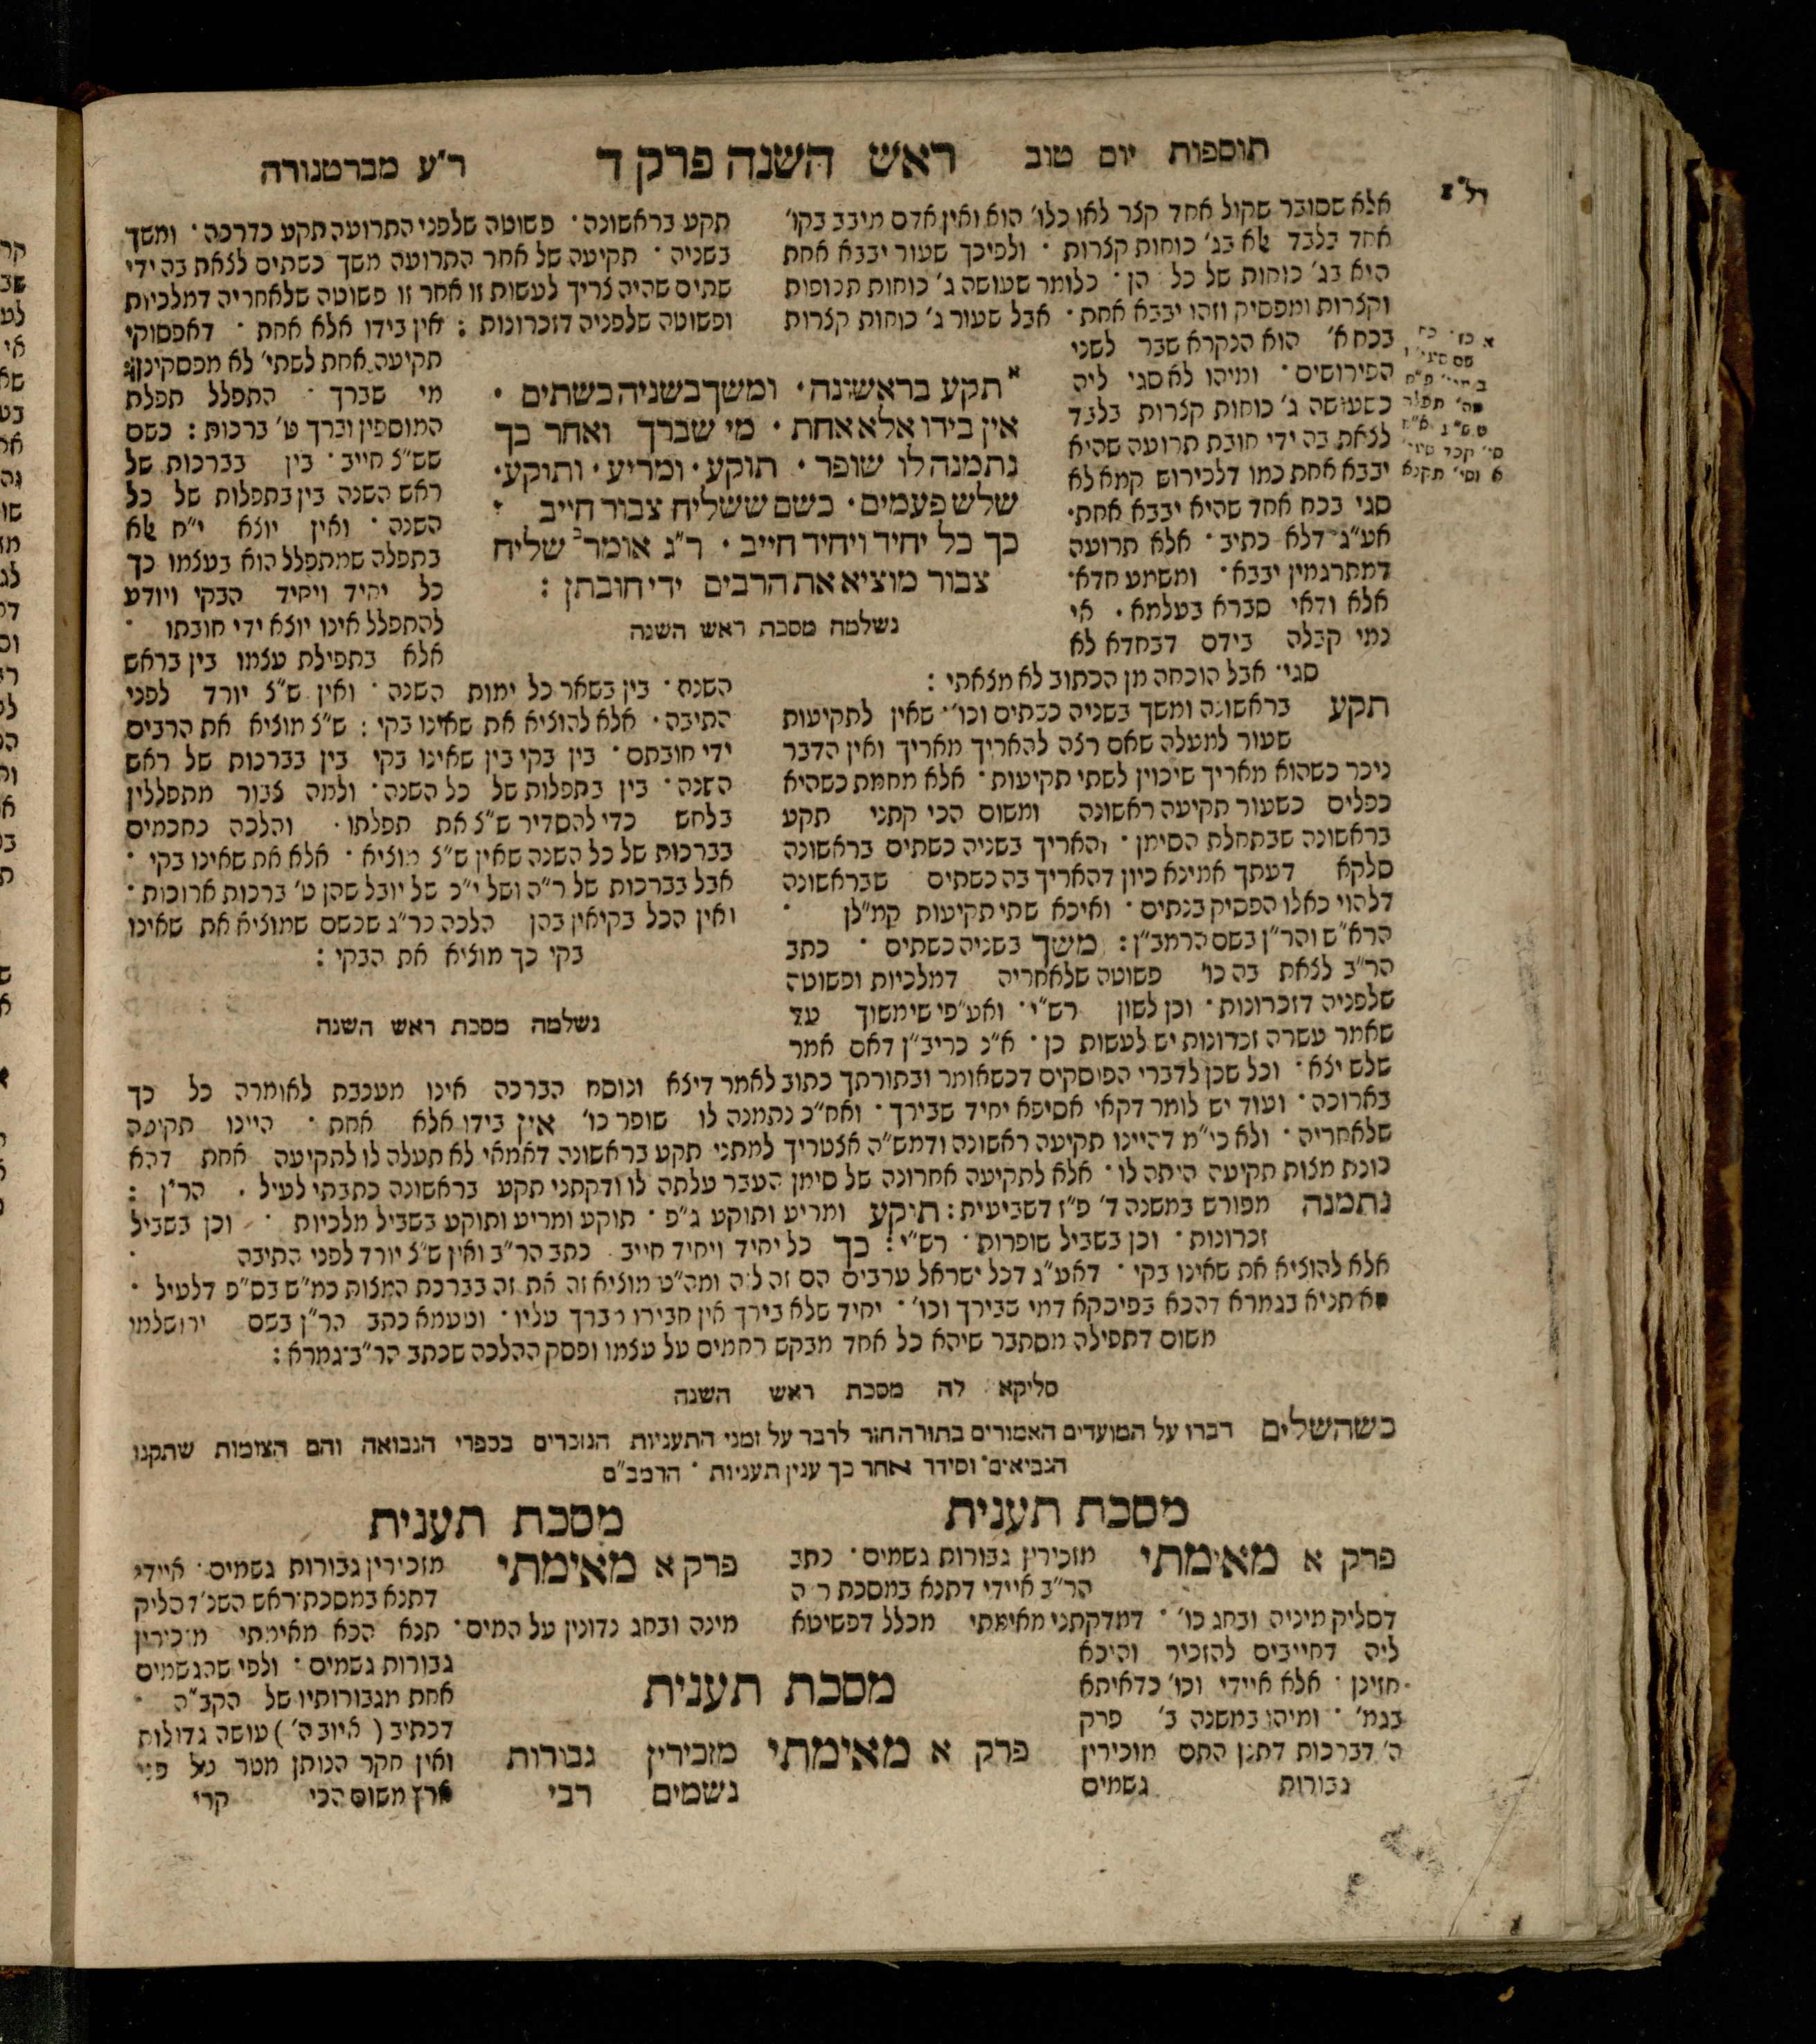 תוספות יום טוב ראש השנה פרק ד ר״ע מברטנורה
אלא שסובר שקול אחד קצר לאו כלו׳ הוא ואין אדם מיבב בקו׳
אחד בלבד אלא בג׳ כוחות קצרות · ולפיכך שעור יבבא אחת
היא בג׳ כוחות של כל הן · כלומר שעושה ג׳ כוחות תכופות
וקצרות ומפסיק וזהו יבבא אחת · אבל שעור ג׳ כוחות קצרות
בכח א׳ הוא הנקרא שבר לשני
הפירושים · ומיהו לא סגי ליה
כשעושה ג׳ כוחות קצרות בלבד
לצאת בה ידי חובת תרועה שהיא
יבבא אחת כמו דלפירוש קמא לא
סגי בכח אחד שהיא יבבא אחת·
אע״ג דלא כתיב · אלא תרועה
דמתרגמין יבבא · ומשמע חדא·
אלא ודאי סברא בעלמא · אי
נמי קבלה בידם דבחדא לא
סגי· אבל הוכחה מן הכתוב לא מצאתי :
תקע בראשונה ומשך בשניה כבתים וכו׳· שאין לתקיעות
שעור למעלה שאם רצה להאריך מאריך ואין הדבר
ניכר כשהוא מאריך שיכוין לשתי תקיעות · אלא מחמת כשהיא
כפלים כשעור תקיעה ראשונה ומשום הכי קתני תקע
בראשונה שבתחלת הסימן · והאריך בשניה כשתים בראשונה
סלקא דעתך אמינא כיון דהאריך בה כשתים שבראשונה
דלהוי כאלו הפסיק בנתים · ואיכא שתי תקיעות קמ״לן ·
הרא״ש והר״ן בשם הרמב״ן : משך בשניה כשתים · כתב
הר״ב לצאת בה כו׳ פשוטה שלאחריה דמלכיות ופשוטה
שלפניה דזכרונות · וכן לשון רש״י · ואע״פי שימשוך עד
שאמר עשרה זכרונות יש לעשות כן · א״נ כריב״ן דאם אמר
שלש יצא · וכל שכן לדברי הפוסקים דכשאומר ובתורתך כתוב לאמר דיצא ונוסח הברכה אינו מעכבת לאומרה כל כך
בארוכה · ועוד יש לומר דקאי אסיפא יחיד שבירך · ואח״כ נתמנה לו שופר כו׳ אין בידו אלא אחת · היינו תקיעה
שלאחריה · ולא כי״מ דהיינו תקיעה ראשונה ודמש״ה אצטריך למתני תקע בראשונה דאמאי לא תעלה לו לתקיעה אחת דהא
כונת מצות תקיעה היתה לו · אלא לתקיעה אחרונה של סימן העבר עלתה לו ודקתני תקע בראשונה כתבתי לעיל · הר״ן :
נתמנה מפורש במשנה ד׳ פ״ז דשביעית : תוקע ומריע ותוקע ג״פ · תוקע ומריע ותוקע בשביל מלכיות · וכן בשביל
זכרונות · וכן בשביל שופרות · רש״י : כך כל יחיד ויחיד חייב · כתב הר״ב ואין ש״צ יורד לפני התיבה ·
אלא להוציא את שאינו בקי · דאע״ג דכל ישראל ערבים הם זה לזה ומה״ט מוציא זה את זה בברכת המצות כמ״ש בס״פ דלעיל ·
הא תניא בגמרא דהכא בפיסקא דמי שבירך וכו׳ · יחיד שלא בירך אין חבירו מברך עליו · וטעמא כתב הר״ן בשם ירושלמי
משום דתפילה מסתבר שיהא כל אחד מבקש רחמים על עצמו ופסק ההלכה שכתב הר״ב·גמרא :
סליקא לה מסכת ראש השנה
תקע בראשונה · פשוטה שלפני התרועה תקע כדרכה · ומשך
בשניה · תקיעה של אחר התרועה משך כשתים לצאת בה ידי
שתים שהיה צריך לעשות זו אחר זו פשוטה שלאחריה דמלכיות
ופשוטה שלפניה דזכרונות : אין בידו אלא אחת · דאפסוקי
תקיעה אחת לשתי׳ לא מפסקינן :
מי שברך · התפלל תפלת
המוספין וברך ט׳ ברכות : כשם
שש״צ חייב · בין בברכות של
ראש השנה בין בתפלות של כל
השנה · ואין יוצא י״ח אלא
בתפלה שמתפלל הוא בעצמו כך
כל יחיד ויחיד הבקי ויודע
להתפלל אינו יוצא ידי חובתו ·
אלא בתפילת עצמו בין בראש
השנה · בין בשאר כל ימות השנה · ואין ש״צ יורד לפני
התיבה · אלא להוציא את שאינו בקי : ש״צ מוציא את הרבים
ידי חובתם · בין בקי בין שאינו בקי בין בברכות של ראש
השנה · בין בתפלות של כל השנה · ולמה צבור מתפללין
בלחש כדי להסדיר ש״צ את תפלתו · והלכה כחכמים
בברכות של כל השנה שאין ש״צ מוציא · אלא את שאינו בקי ·
אבל בברכות של ר״ה ושל י״כ של יובל שהן ט׳ ברכות ארוכות ·
ואין הכל בקיאין בהן הלכה כר״ג שכשם שמוציא את שאינו
בקי כך מוציא את הבקי :
נשלמה מסכת ראש השנה
תקע בראשונה · ומשך בשניה כשתים ·
אין בידו אלא אחת · מי שברך ואחר כך
נתמנה לו שופר · תוקע · ומריע · ותוקע ·
שלש פעמים · כשם ששליח צבור חייב :
כך כל יחיד ויחיד חייב · ר״ג אומר שליח
צבור מוציא את הרבים ידי חובתן :
נשלמה מסכת ראש השנה
כשהשלים דברו על המועדים האמורים בתורה חזר לדבר על זמני התעניות הנזכרים בספרי הנבואה והם הצומות שתקנו
הנביאים · וסידר אחר כך ענין תעניות · הרמב״ם
מסכת תענית
פרק א מאימתי מזכירין גבורות גשמים · כתב
הר״ב איידי דתנא במסכת ר״ה
דסליק מיניה ובחג כו׳ · דמדקתני מאימתי מכלל דפשיטא
ליה דחייבים להזכיר והיכא
חזינן · אלא איידי וכו׳ כדאיתא
בגמ׳ · ומיהו במשנה ב׳ פרק
ה׳ דברכות דתנן התם מזכירין
גבורות גשמים
מסכת תענית
פרק א מאימתי מזכירין גבורות גשמים · איידי
דתנא במסכת ראש השנ׳ דסליק
מינה ובחג נדונין על המים · תנא הכא מאימתי מזכירין
גבורות גשמים · ולפי שהגשמים
אחת מגבורותיו של הקב״ה ·
דכתיב ( איוב ה׳ ) עושה גדולות
ואין חקר הנותן מטר על פני
ארץ משום הכי קרי
מסכת תענית
פרק א מאימתי מזכירין גבורות
גשמים רבי